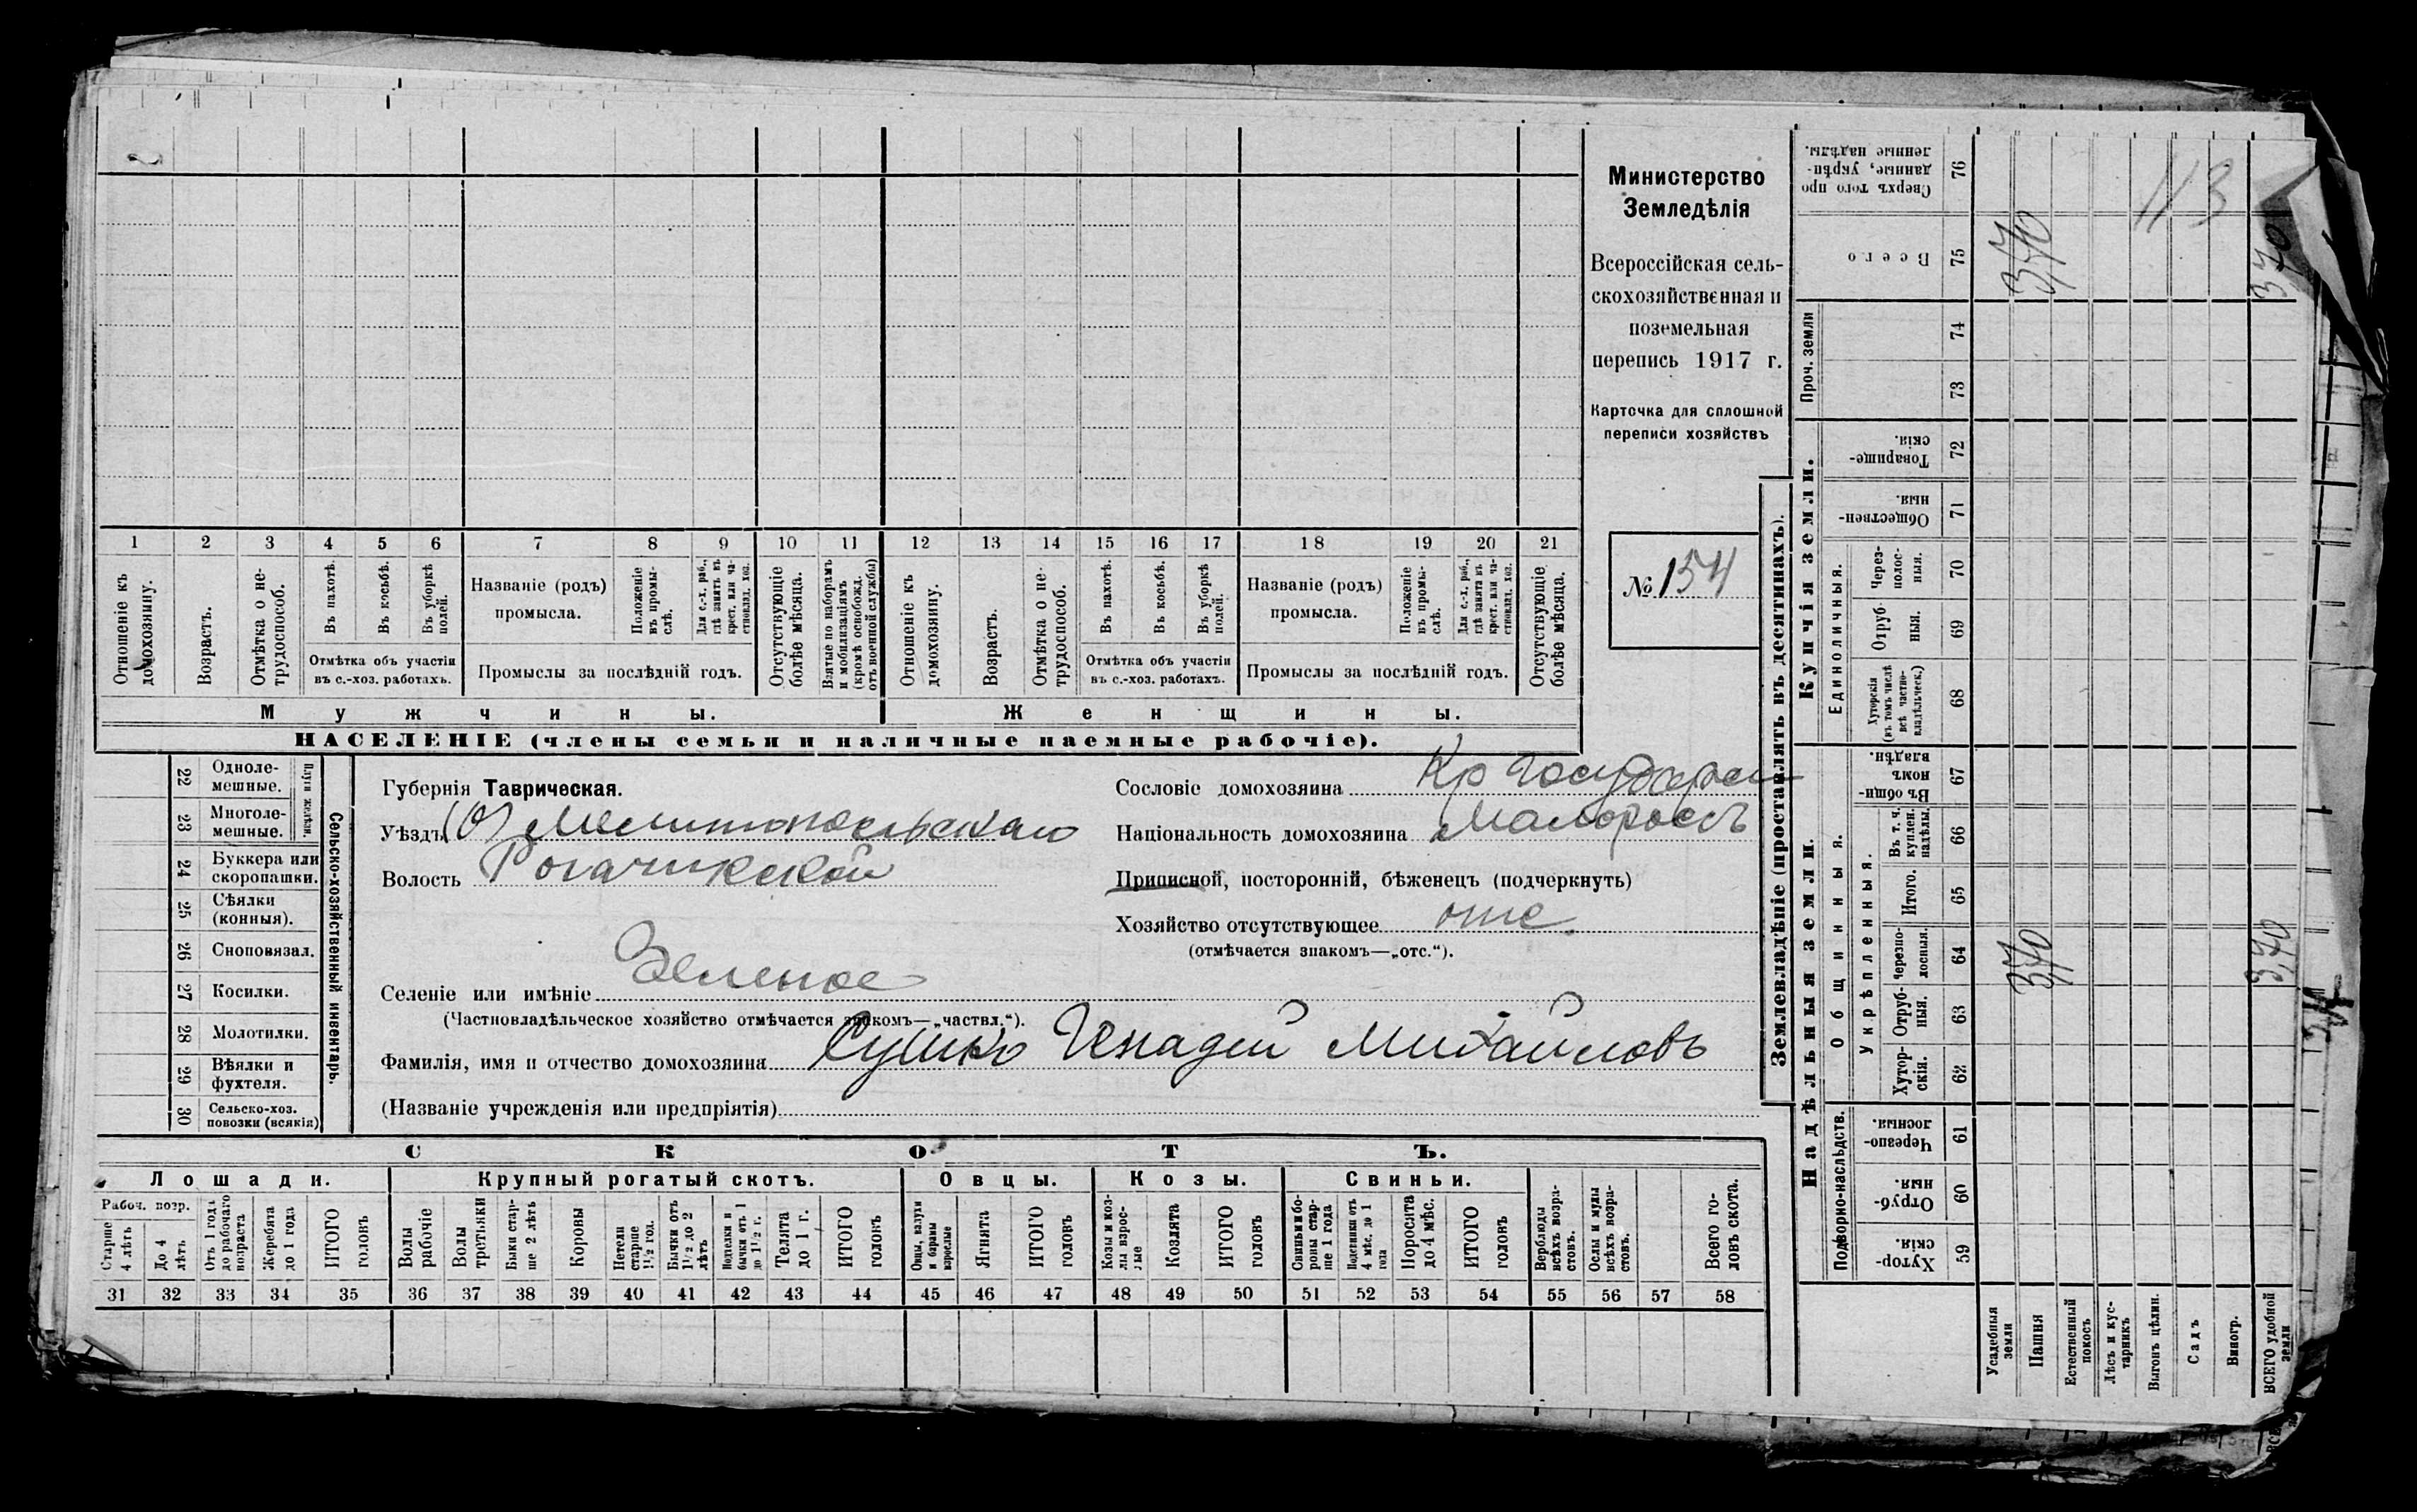 1 2 3 4 5 6 7 8 9 10 11 12 13 14 15 16 17 18 19 20 21
Отношеніе къ домохозяину.
Возрастъ.
Отмѣтка о нетрудоспособ.
Въ пахотѣ.
Въ косьбѣ.
Въ уборкѣ полей.
Отмѣтка объ участіи
въ с.-хоз. работахъ.
Названіе (родъ)
промысла.
Положеніе въ промыслѣ.
Для с.-х. раб., гдѣ занятъ въ крест. или частновлад. хоз.
Промыслы за послѣдній годъ.
Отсутствующіе болѣе мѣсяца.
Взятые по наборамъ и мобилизаціямъ (кромѣ освобожд. отъ военной службы)
Отношеніе къ домохозяину.
Возрастъ.
Отмѣтка о нетрудоспособ.
Въ пахотѣ.
Въ косьбѣ.
Въ уборкѣ полей.
Отмѣтка объ участіи
въ с.-хоз. работахъ.
Названіе (родъ)
промысла.
Положеніе въ промыслѣ.
Для с.-х. раб., гдѣ занятъ въ крест. или частновлад. хоз.
Промыслы за послѣдній годъ.
Отсутствующіе болѣе мѣсяца.
Мужчины. Женщины.
НАСЕЛЕНІЕ (члены семьи и наличные наемные рабочіе).
Министерство
Земледѣлія
Всероссійская сель-
скохозяйственная и
поземельная
перепись 1917 г.
Карточка для сплошной
переписи хозяйствъ
№ 154
22 Однолемешные.
23 Многолемешные.
Плуги желѣзн.
24 Буккера или скоропашки.
25 Сѣялки (конныя).
26 Сноповязал.
27 Косилки.
28 Молотилки.
29 Вѣялки и фухтеля.
30 Сельско-хоз. повозки (всякія)
Сельско-хозяйственный инвентарь.
Губернія Таврическая.
Уѣздъ (О) Мелитопольскаго
Волость Рогачикской
Селеніе или имѣніе Зеленое
(Частновладѣльческое хозяйство отмѣчается знакомъ—„частвл.“).
Фамилія, имя и отчество домохозяина Сушко Генадей Михайловъ
(Названіе учрежденія или предпріятія)
Сословіе домохозяина Кр Государствен
Національность домохозяина Малороссъ
Приписной, посторонній, бѣженецъ (подчеркнуть)
Хозяйство отсутствующее отс.
(отмѣчается знакомъ—„отс.“).
СКОТЪ.
Лошади. Крупный рогатый скотъ. Овцы. Козы. Свиньи.
Рабоч. возр.
Старше 4 лѣтъ
До 4 лѣтъ
Отъ 1 года до рабочаго возраста
Жеребята до 1 года
ИТОГО головъ
Волы рабочіе
Волы третьяки
Быки старше 2 лѣтъ
Коровы
Нетели старше 1½ год.
Бычки отъ 1½ до 2 лѣтъ
Подтелки и бычки отъ 1 до 1½ г.
Телята до 1 г.
ИТОГО головъ
Овцы, валухи и бараны взрослые
Ягнята
ИТОГО головъ
Козы и козлы взрослые
Козлята
ИТОГО головъ
Свиньи и боровы старше 1 года
Подсвинки отъ 4 мѣс. до 1 года
Поросята до 4 мѣс.
ИТОГО головъ
Верблюды всѣхъ возрастовъ.
Ослы и мулы всѣхъ возрастовъ.
Всего головъ скота.
31 32 33 34 35 36 37 38 39 40 41 42 43 44 45 46 47 48 49 50 51 52 53 54 55 56 57 58
Землевладѣніе (проставлять въ десятинахъ).
Надѣльныя земли. Купчія земли. Проч. земли
Подворно-наслѣдств. Общинныя. Единоличныя.
Укрѣпленныя.
Хуторскія. 59
Отрубныя. 60
Черезполосныя. 61
Хуторскія. 62
Отрубныя. 63
Черезполосныя. 64
Итого. 65
Въ т. ч. куплен. надѣлы. 66
Въ общинномъ владѣн. 67
Хуторскія (въ томъ числѣ всѣ частновладѣльческ.) 68
Отрубныя. 69
Черезполосныя. 70
Общественныя. 71
Товарищескія. 72
73
74
Всего 75
Сверхъ того проданные, укрѣпленные надѣлы. 76
Усадебныя земли
Пашня 3,70 3,70
Естественный покосъ
Лѣсъ и кустарникъ
Выгонъ цѣлин.
Садъ
Виногр.
ВСЕГО удобной земли 3,70 3,70
113